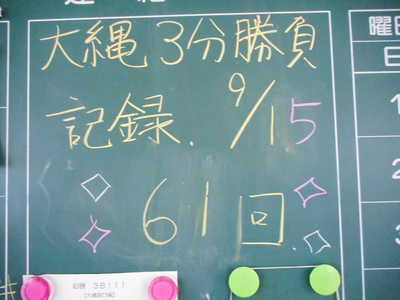 大縄 3分勝負
記録. 9/15
61回.
曜日
日